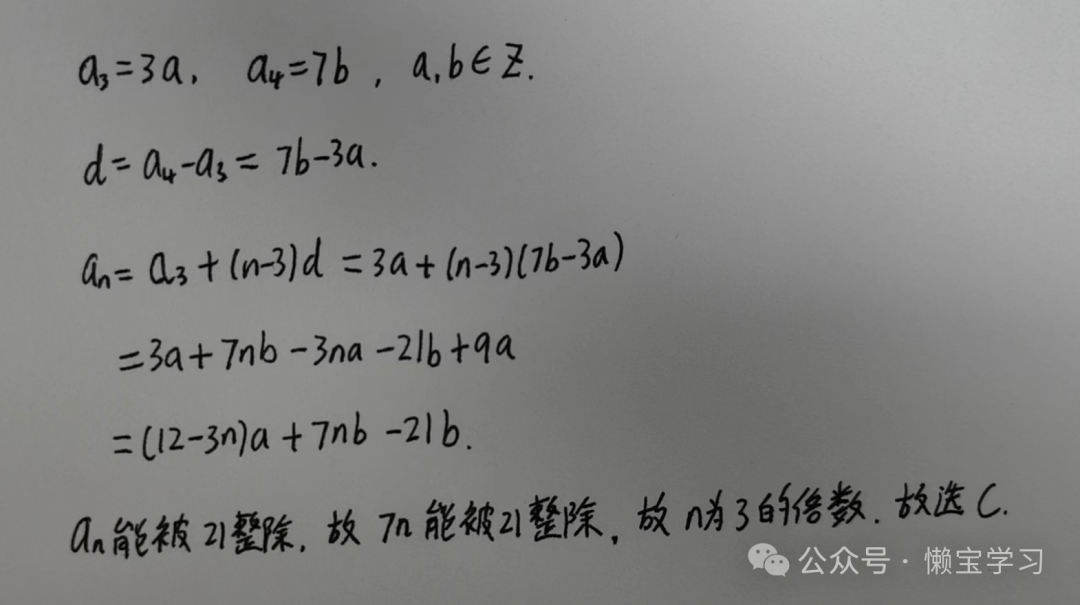 a₃=3a, a₄=7b, a,b∈Z.
d=a₄-a₃=7b-3a.
aₙ=a₃+(n-3)d=3a+(n-3)(7b-3a)
=3a+7nb-3na-21b+9a
=(12-3n)a+7nb-21b.
aₙ能被21整除,故7n能被21整除,故n为3的倍数.故选C.
公众号·懒宝学习